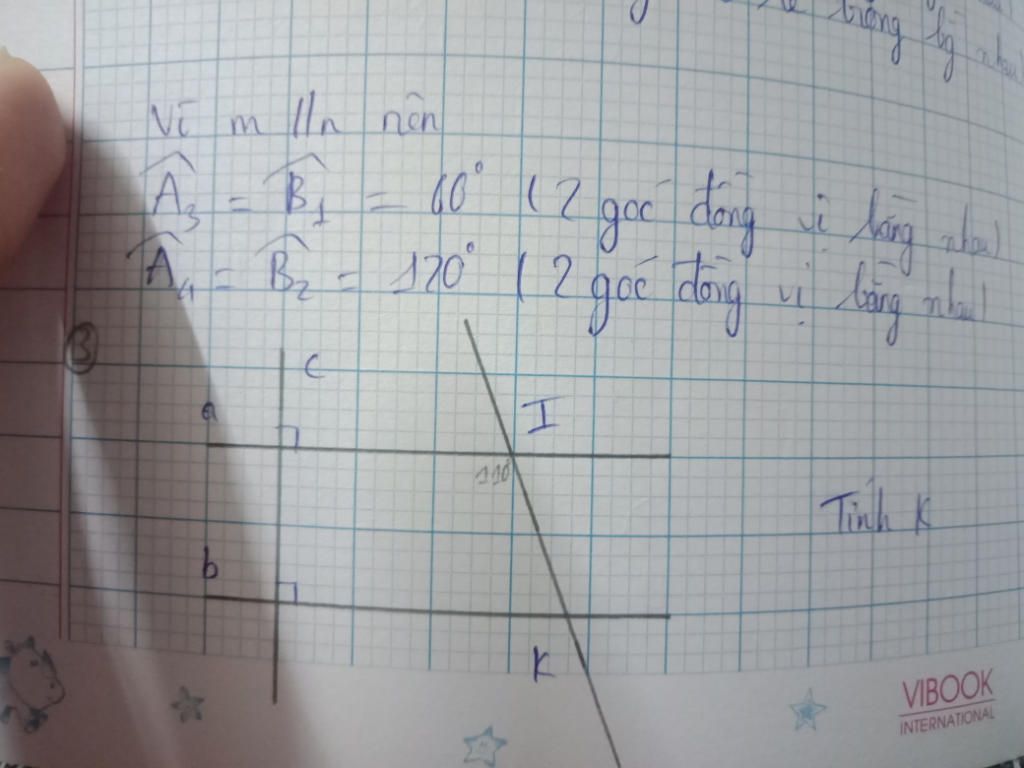 trong bg nhau
Vì m //n nên
A₃ = B₁ = 60° ( 2 góc đồng vị bằng nhau)
A₄ = B₂ = 120° ( 2 góc đồng vị bằng nhau)
3
c
a
I
110
Tính K
b
K
VIBOOK
INTERNATIONAL